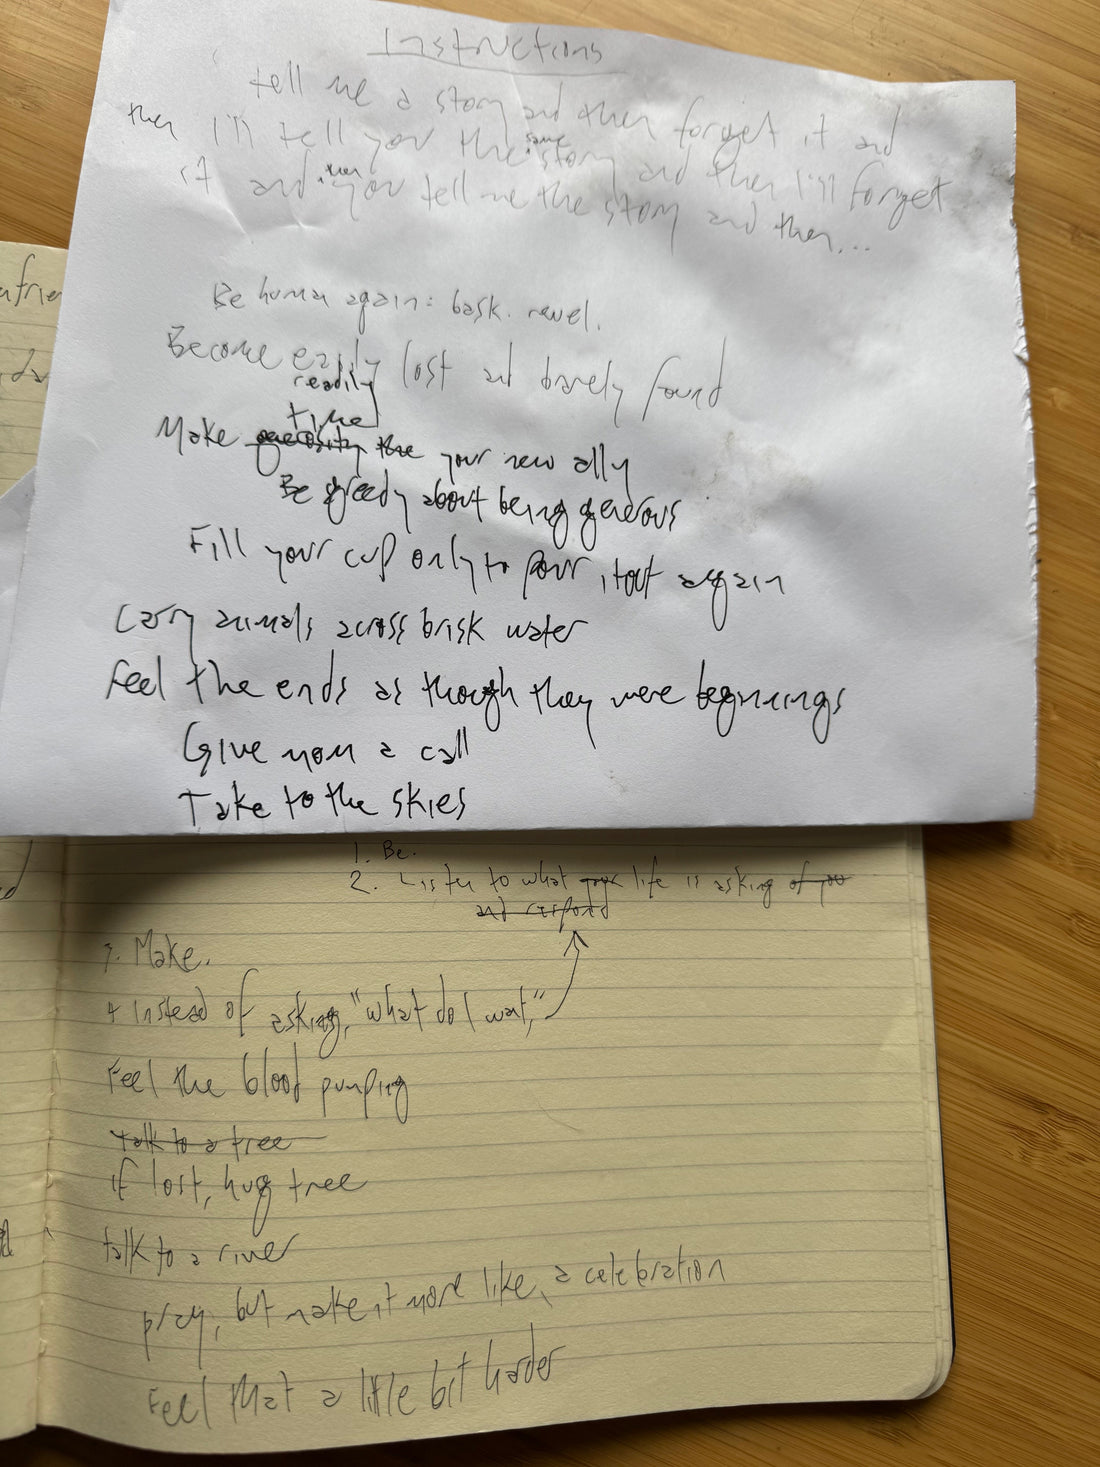 Instructions
tell me a story and then forget it and
then I'll tell you the same story and then I'll forget
it and then you tell me the story and then...
Be human again: bask. revel.
Become easily lost and barely found
readily
time
Make generosity the your new ally
Be greedy about being generous
Fill your cup only to pour it out again
Carry animals across brisk water
Feel the ends as though they were beginnings
Give mom a call
Take to the skies
1. Be.
2. Listen to what your life is asking of you
and respond
3. Make.
4 instead of asking, "what do I want,"
Feel the blood pumping
Talk to a tree
if lost, hug tree
talk to a river
pray, but make it more like a celebration
Feel that a little bit harder